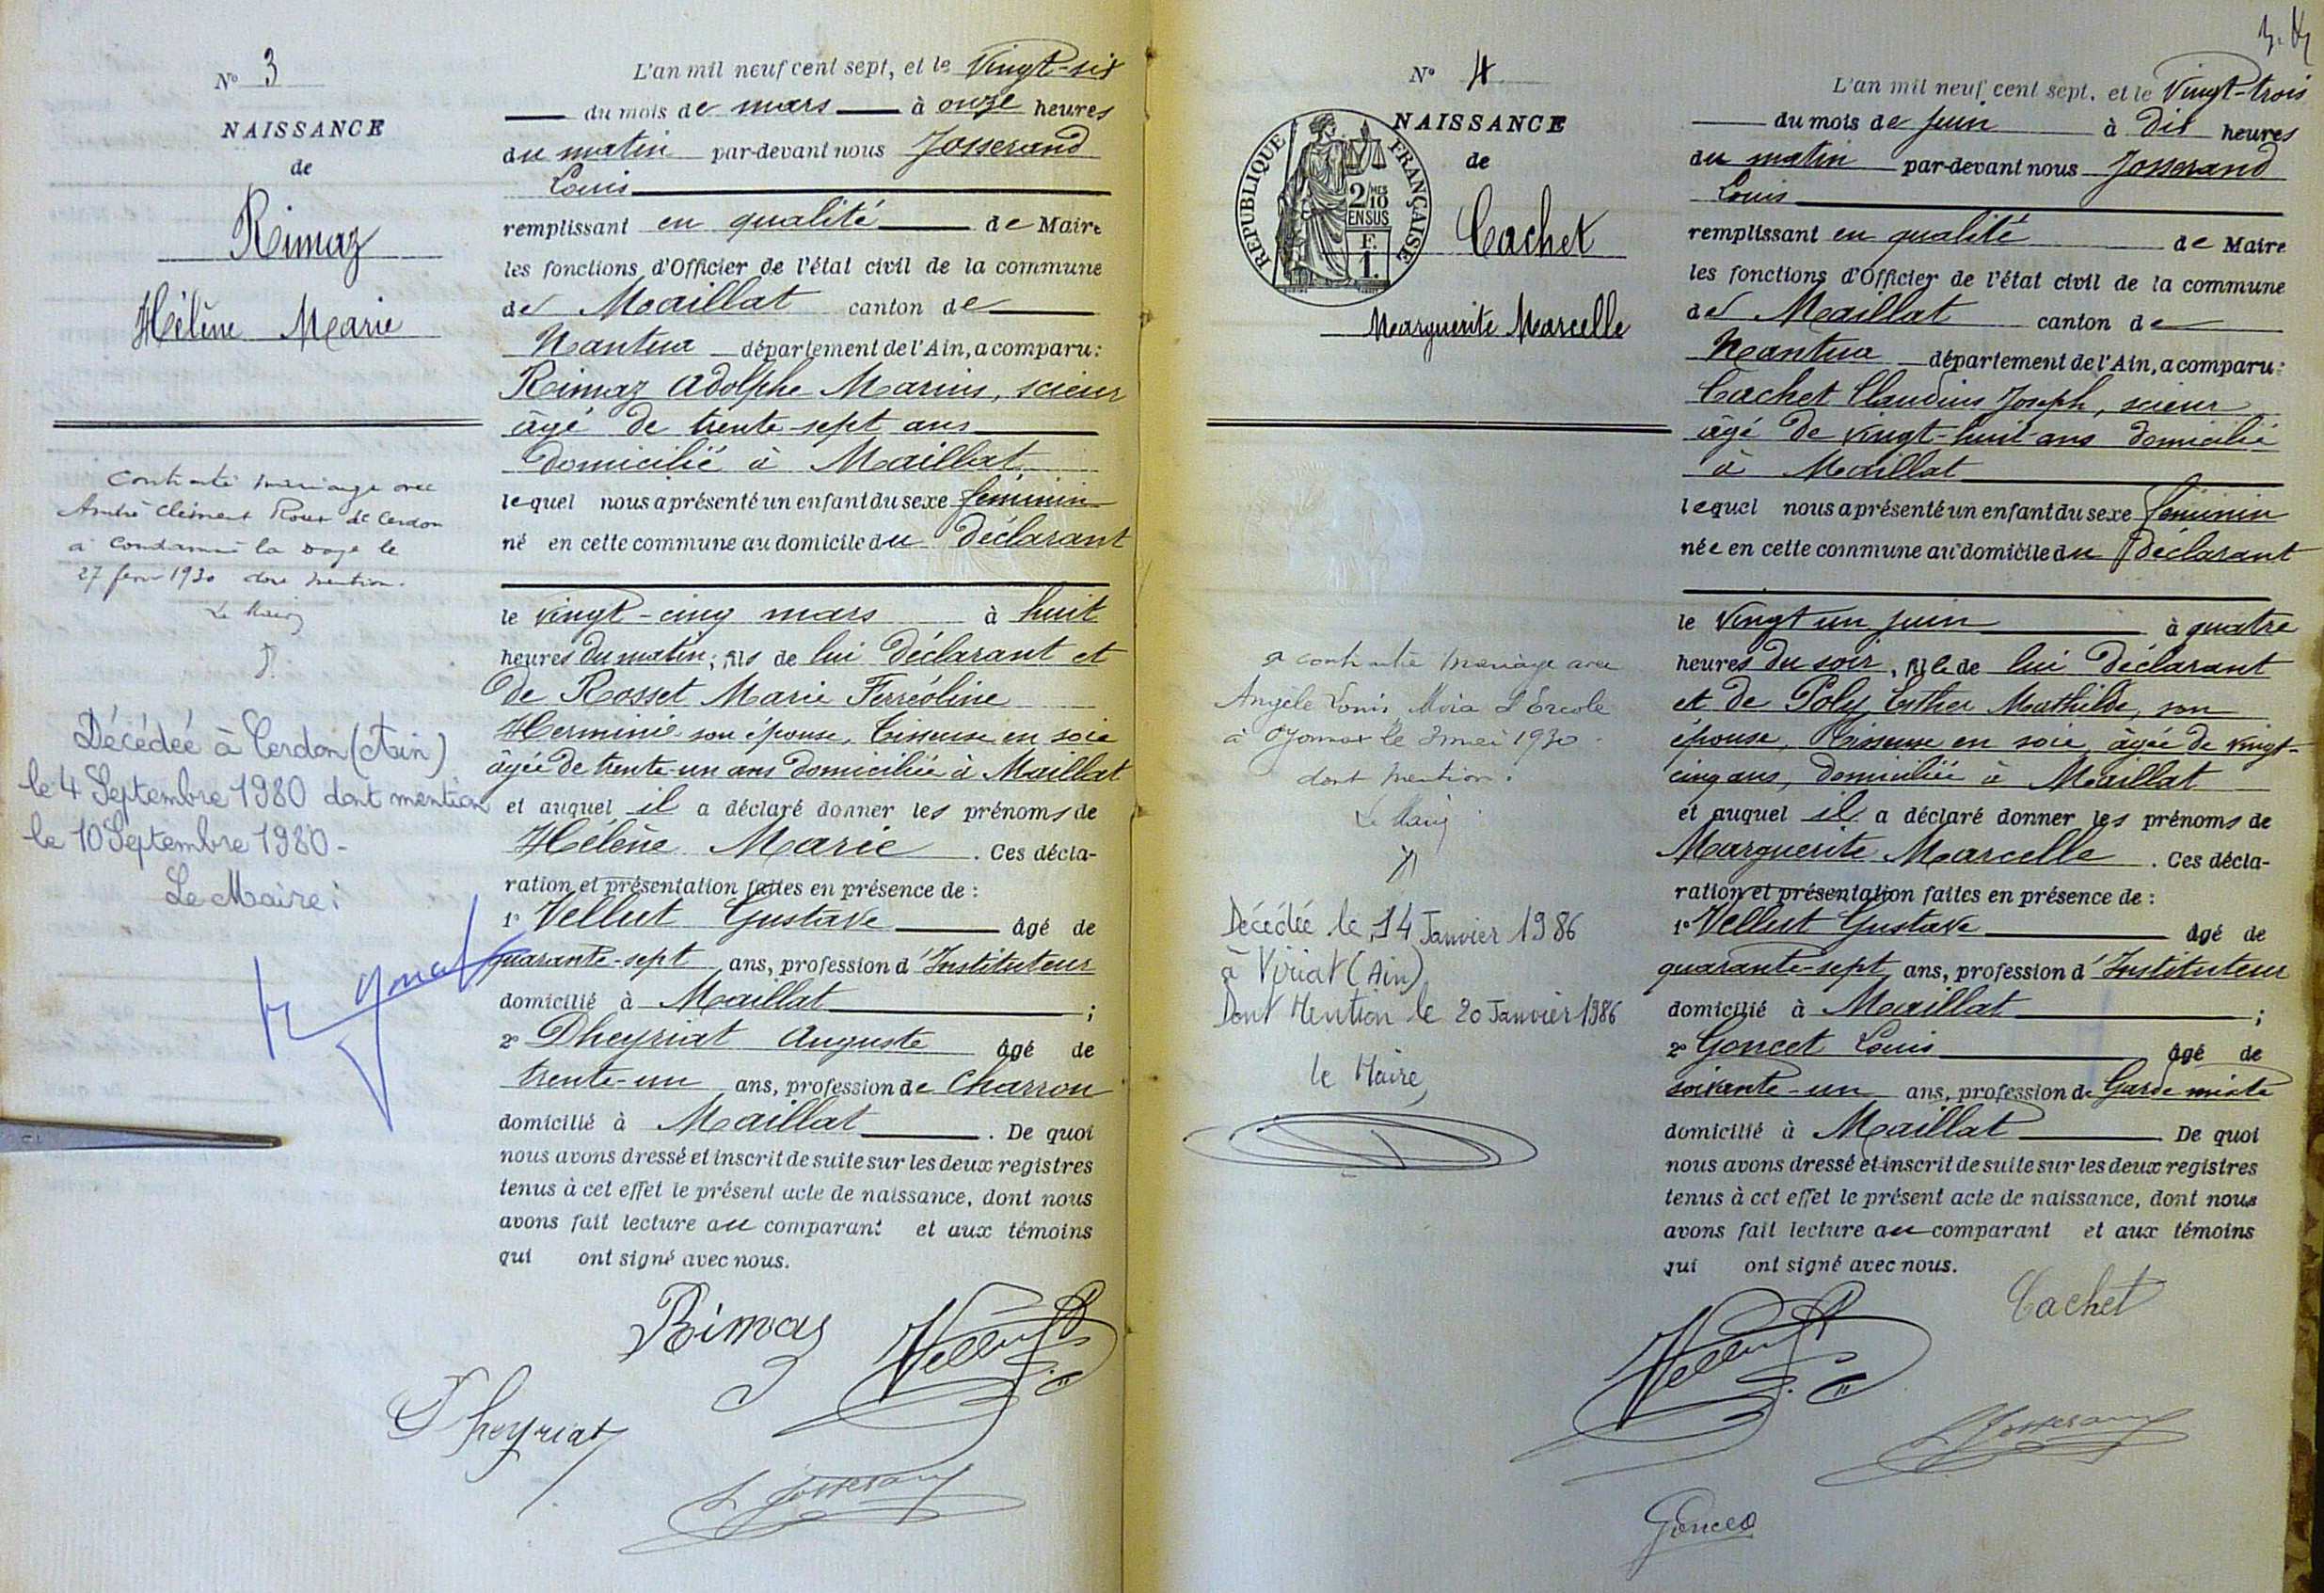 N° 3
NAISSANCE
de
Rimaz
Hélène Marie
Contracté mariage avec
André Clément Roux de Cerdon
à Condamine la Doye le
27 fevr 1930 dont mention.
Le Maire
Décédée à Cerdon (Ain)
le 4 Septembre 1980 dont mention
le 10 Septembre 1980 -
Le Maire :
L'an mil neuf cent sept, et le Vingt-six
du mois de mars à onze heures
du matin par-devant nous Josserand
Louis
remplissant en qualité de Maire
les fonctions d'Officier de l'état civil de la commune
de Maillat canton de
Nantua département de l'Ain, a comparu :
Rimaz Adolphe Marius, scieur
âgé de trente-sept ans
domicilié à Maillat
lequel nous a présenté un enfant du sexe féminin
né en cette commune au domicile du déclarant
le vingt-cinq mars à huit
heures du matin ; fils de lui déclarant et
de Rosset Marie Ferréoline
Herminie son épouse, Tisseuse en soie
âgée de trente-un ans domiciliée à Maillat
et auquel il a déclaré donner les prénoms de
Hélène Marie . Ces décla-
ration et présentation faites en présence de :
1° Vellut Gustave âgé de
quarante-sept ans, profession d'Instituteur
domicilié à Maillat ;
2° Dheyriat Auguste âgé de
trente-un ans, profession de Charron
domicilié à Maillat . De quoi
nous avons dressé et inscrit de suite sur les deux registres
tenus à cet effet le présent acte de naissance, dont nous
avons fait lecture au comparant et aux témoins
qui ont signé avec nous.
Rimaz Vellut
Dheyriat
L. Josserand
N° 4
NAISSANCE
de
REPUBLIQUE FRANÇAISE
2/10 MES
EN SUS
F.
1.
Cachet
Marguerite Marcelle
a contracté mariage avec
Angèle Louis Mora d'Ercole
à Oyonnax le 3 mai 1930
dont mention.
Le Maire
Décédée le 14 Janvier 1986
à Viriat (Ain)
Dont Mention le 20 Janvier 1986
le Maire,
L'an mil neuf cent sept, et le Vingt-trois
du mois de juin à dix heures
du matin par-devant nous Josserand
Louis
remplissant en qualité de Maire
les fonctions d'Officier de l'état civil de la commune
de Maillat canton de
Nantua département de l'Ain, a comparu :
Cachet Claudius Joseph, scieur
âgé de vingt-huit ans domicilié
à Maillat
lequel nous a présenté un enfant du sexe féminin
née en cette commune au domicile du déclarant
le vingt un juin à quatre
heures du soir, fille de lui déclarant
et de Poly Esther Mathilde, son
épouse, Tisseuse en soie, âgée de vingt-
cinq ans, domiciliée à Maillat
et auquel il a déclaré donner les prénoms de
Marguerite Marcelle . Ces décla-
ration et présentation faites en présence de :
1° Vellut Gustave âgé de
quarante-sept ans, profession d'Instituteur
domicilié à Maillat ;
2° Goncet Louis âgé de
soixante-un ans, profession de Garde mixte
domicilié à Maillat De quoi
nous avons dressé et inscrit de suite sur les deux registres
tenus à cet effet le présent acte de naissance, dont nous
avons fait lecture au comparant et aux témoins
qui ont signé avec nous.
Cachet
Vellut
L. Josserand
Goncet